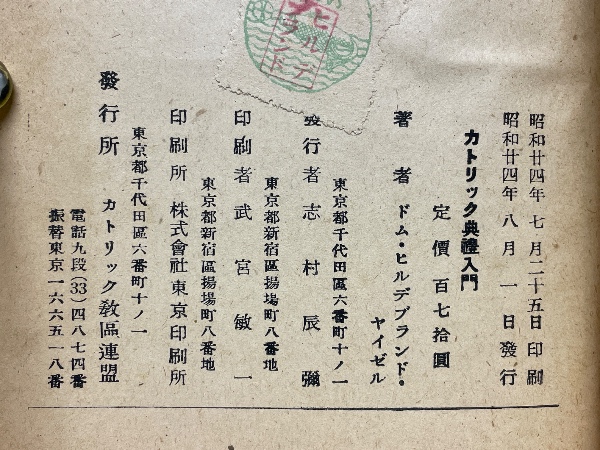 ヒルデ
ブランド
昭和廿四年七月二十五日印刷
昭和廿四年八月一日發行
カトリック典禮入門
定價百七拾圓
著者 ドム・ヒルデブランド・
ヤイゼル
東京都千代田區六番町十ノ一
發行者 志村辰彌
東京都新宿區揚場町八番地
印刷者 武宮敏一
東京都新宿區揚場町八番地
印刷所 株式會社東京印刷所
東京都千代田區六番町十ノ一
發行所 カトリック敎區連盟
電話九段(33)四八七四番
振替東京一六六五一八番